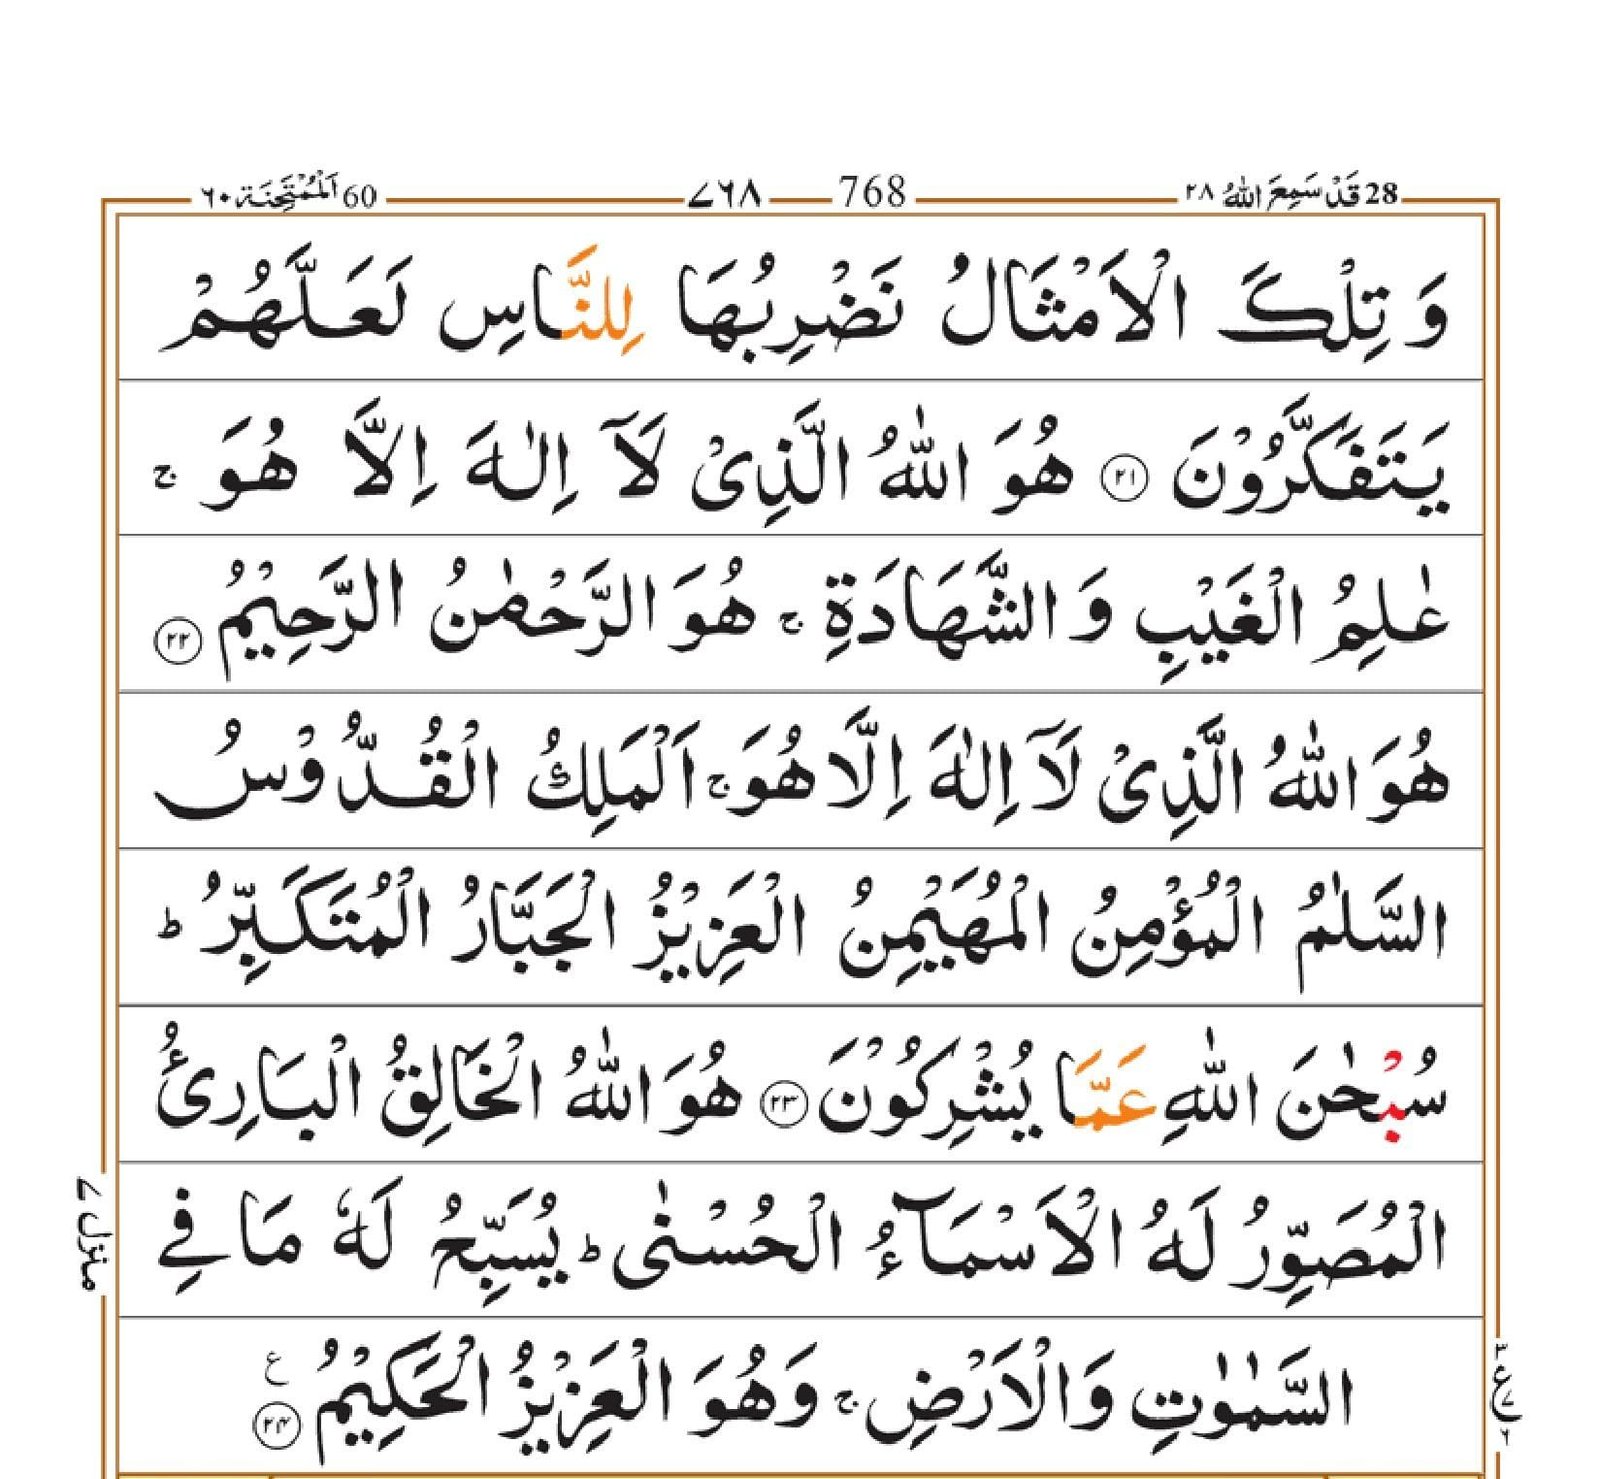 28 قَدْ سَمِعَ اللّٰهُ ٢٨ 768 ٧٦٨ 60 اَلْمُمْتَحِنَة ٦٠
وَ تِلْكَ الْاَمْثَالُ نَضْرِبُهَا لِلنَّاسِ لَعَلَّهُمْ
يَتَفَكَّرُوْنَ ﴿٢١﴾ هُوَ اللّٰهُ الَّذِیْ لَاۤ اِلٰهَ اِلَّا هُوَ ۚ
عٰلِمُ الْغَيْبِ وَ الشَّهَادَةِ ۚ هُوَ الرَّحْمٰنُ الرَّحِيْمُ ﴿٢٢﴾
هُوَ اللّٰهُ الَّذِیْ لَاۤ اِلٰهَ اِلَّا هُوَ ۚ اَلْمَلِكُ الْقُدُّوْسُ
السَّلٰمُ الْمُؤْمِنُ الْمُهَيْمِنُ الْعَزِيْزُ الْجَبَّارُ الْمُتَكَبِّرُ ؕ
سُبْحٰنَ اللّٰهِ عَمَّا يُشْرِكُوْنَ ﴿٢٣﴾ هُوَ اللّٰهُ الْخَالِقُ الْبَارِئُ
الْمُصَوِّرُ لَهُ الْاَسْمَآءُ الْحُسْنٰی ؕ يُسَبِّحُ لَهٗ مَا فِی
السَّمٰوٰتِ وَالْاَرْضِ ۚ وَهُوَ الْعَزِيْزُ الْحَكِيْمُ ﴿٢٤﴾ ع
منزل ٧
٣ ع ٧ ٦